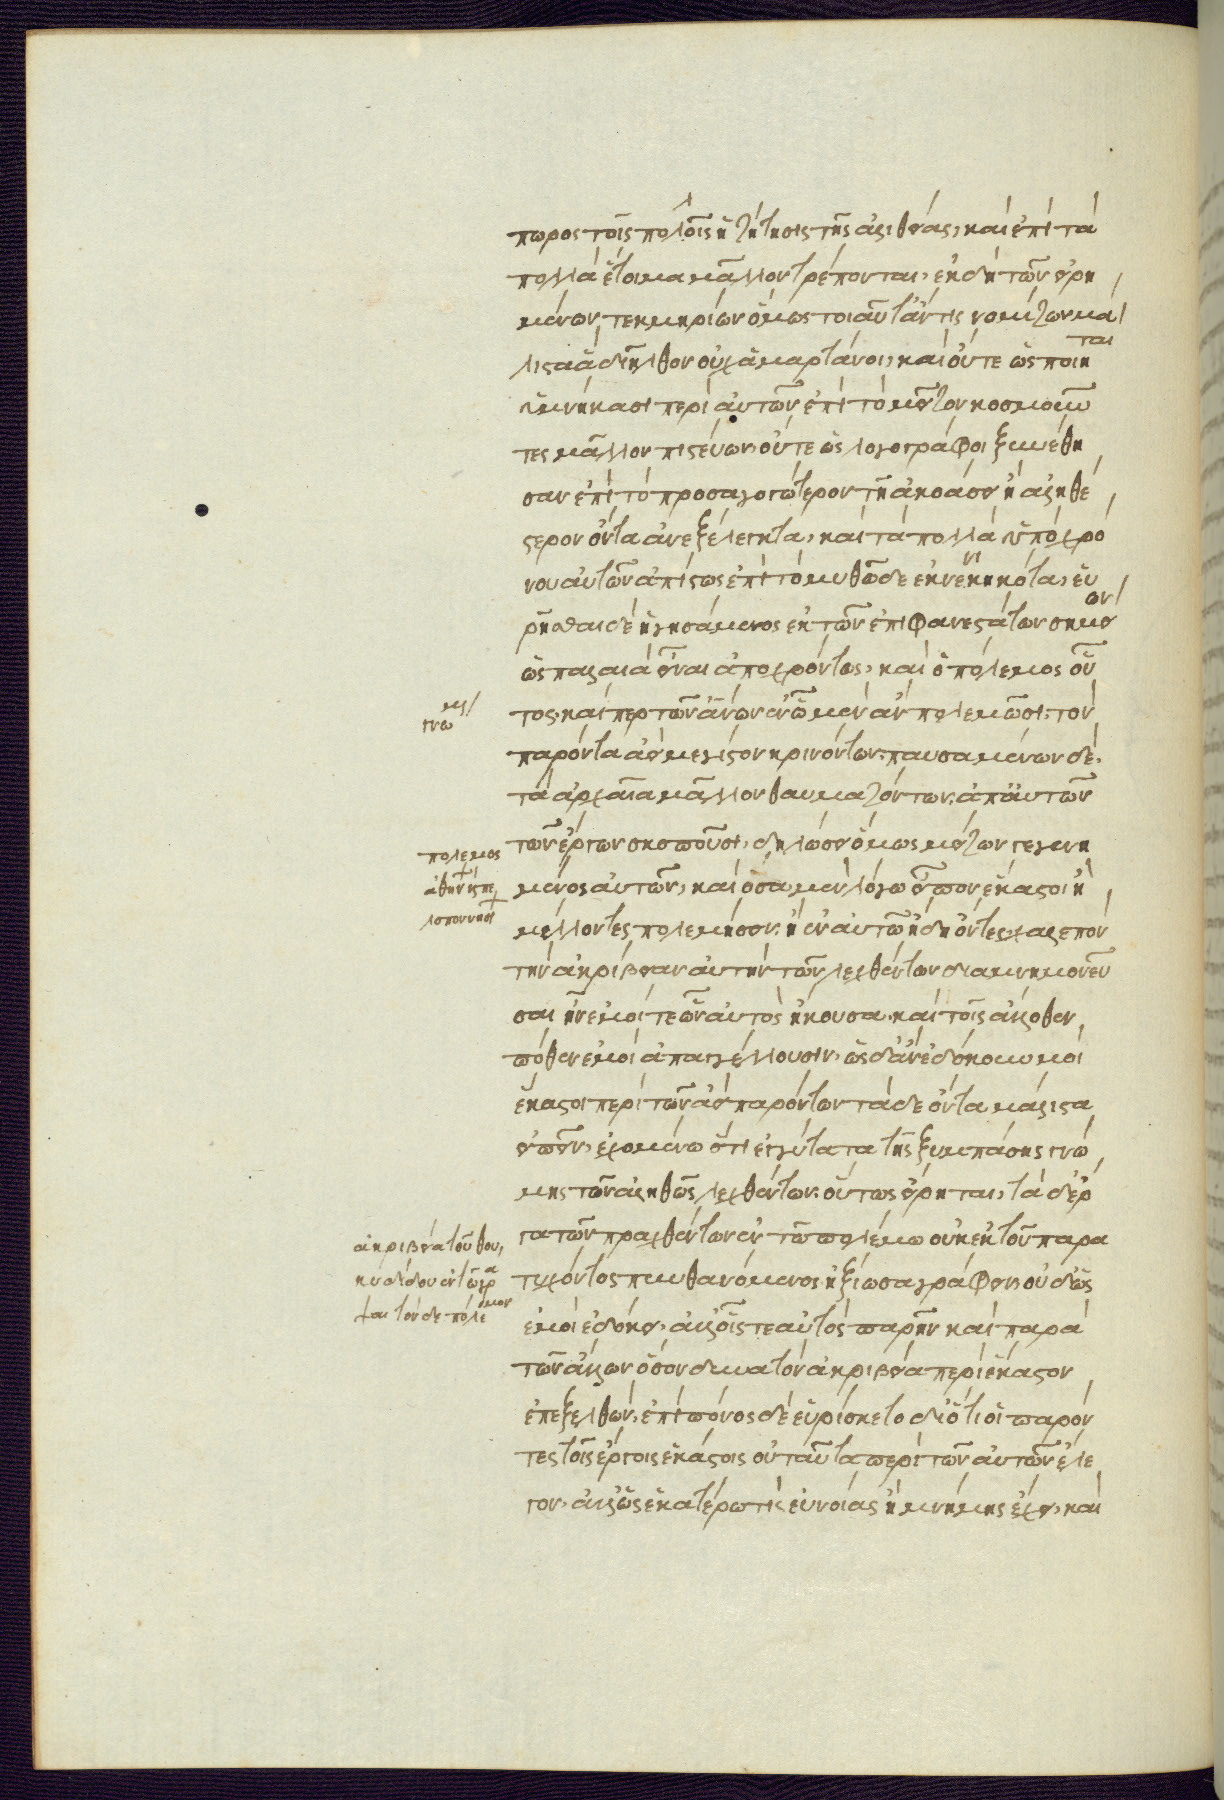 πωρος τοῖς πολλοῖς ἡ ζήτησις τῆς ἀληθείας, καὶ ἐπὶ τὰ
πολλὰ ἕτοιμα μᾶλλον τρέπονται, ἐκ δὴ τῶν εἰρη
μένων τεκμηρίων ὅμως τοιαῦτ' ἄν τις νομίζων μά
λιστα ἃ διῆλθον οὐχ ἁμαρτάνοι, καὶ οὔτε ὡς ποιηταὶ
ὑμνήκασι περὶ αὐτῶν ἐπὶ τὸ μεῖζον κοσμοῦν
τες μᾶλλον πιστεύων, οὔτε ὡς λογογράφοι ξυνέθε
σαν ἐπὶ τὸ προσαγωγότερον τῇ ἀκροάσει ἢ ἀληθέ
στερον ὄντα ἀνεξέλεγκτα, καὶ τὰ πολλὰ ὑπὸ χρό
νου αὐτῶν ἀπίστως ἐπὶ τὸ μυθῶδες ἐκνενικηκότα, εὑ
ρῆσθαι δὲ ἡγησάμενος ἐκ τῶν ἐπιφανεστάτων σημείων
ὡς παλαιὰ εἶναι ἀποχρόντως, καὶ ὁ πόλεμος οὗ
τος, καίπερ τῶν ἀνων ἐν ᾧ μὲν ἂν πολεμῶσι, τὸν
παρόντα ἀεὶ μέγιστον κρινόντων, παυσαμένων δὲ,
τὰ ἀρχαῖα μᾶλλον θαυμαζόντων, ἀπ' αὐτῶν
τῶν ἔργων σκοποῦσι, δηλώσει ὅμως μείζων γεγενη
μένος αὐτῶν, καὶ ὅσα μὲν λόγω εἶπον ἕκαστοι ἢ
μέλλοντες πολεμήσειν, ἢ ἐν αὐτῶ ἤδη ὄντες, χαλεπὸν
τὴν ἀκρίβειαν αὐτὴν τῶν λεχθέντων διαμνημονεῦ
σαι ἦν ἐμοί τε ὧν αὐτὸς ἤκουσα, καὶ τοῖς ἄλλοθεν
πόθεν ἐμοὶ ἀπαγγέλλουσιν, ὡς δ' ἂν ἐδόκουν μοὶ
ἕκαστοι περὶ τῶν ἀεὶ παρόντων τὰ δέοντα μάλιστα
εἰπεῖν, ἐχομένω ὅτι ἐγγύτατα τῆς ξυμπάσης γνώ
μης τῶν ἀληθῶς λεχθέντων, οὕτως εἴρηται, τὰ δ' ἔρ
γα τῶν πραχθέντων ἐν τῶ πολέμω οὐκ ἐκ τοῦ παρα
τυχόντος πυνθανόμενος ἠξίωσα γράφειν, οὐδ' ὡς
ἐμοὶ ἐδόκει, ἀλλ' οἷς τε αὐτὸς παρῆν καὶ παρὰ
τῶν ἄλλων ὅσον δυνατὸν ἀκριβεία περὶ ἑκάστου
ἐπεξελθών, ἐπιπόνως δὲ εὑρίσκετο διότι οἱ παρόν
τες τοῖς ἔργοις ἑκάστοις οὐ ταῦτα περὶ τῶν αὐτῶν ἔλε
γον, ἀλλ' ὡς ἑκατέρω τις εὐνοίας ἢ μνήμης ἔχει, καὶ
γνώμη
πόλεμος
ἀθην κ πε
λοποννησ
ἀκρίβεια τοῦ θου
κυδίδου ἐν τῶ γρά
ψαι τόνδε πόλεμον